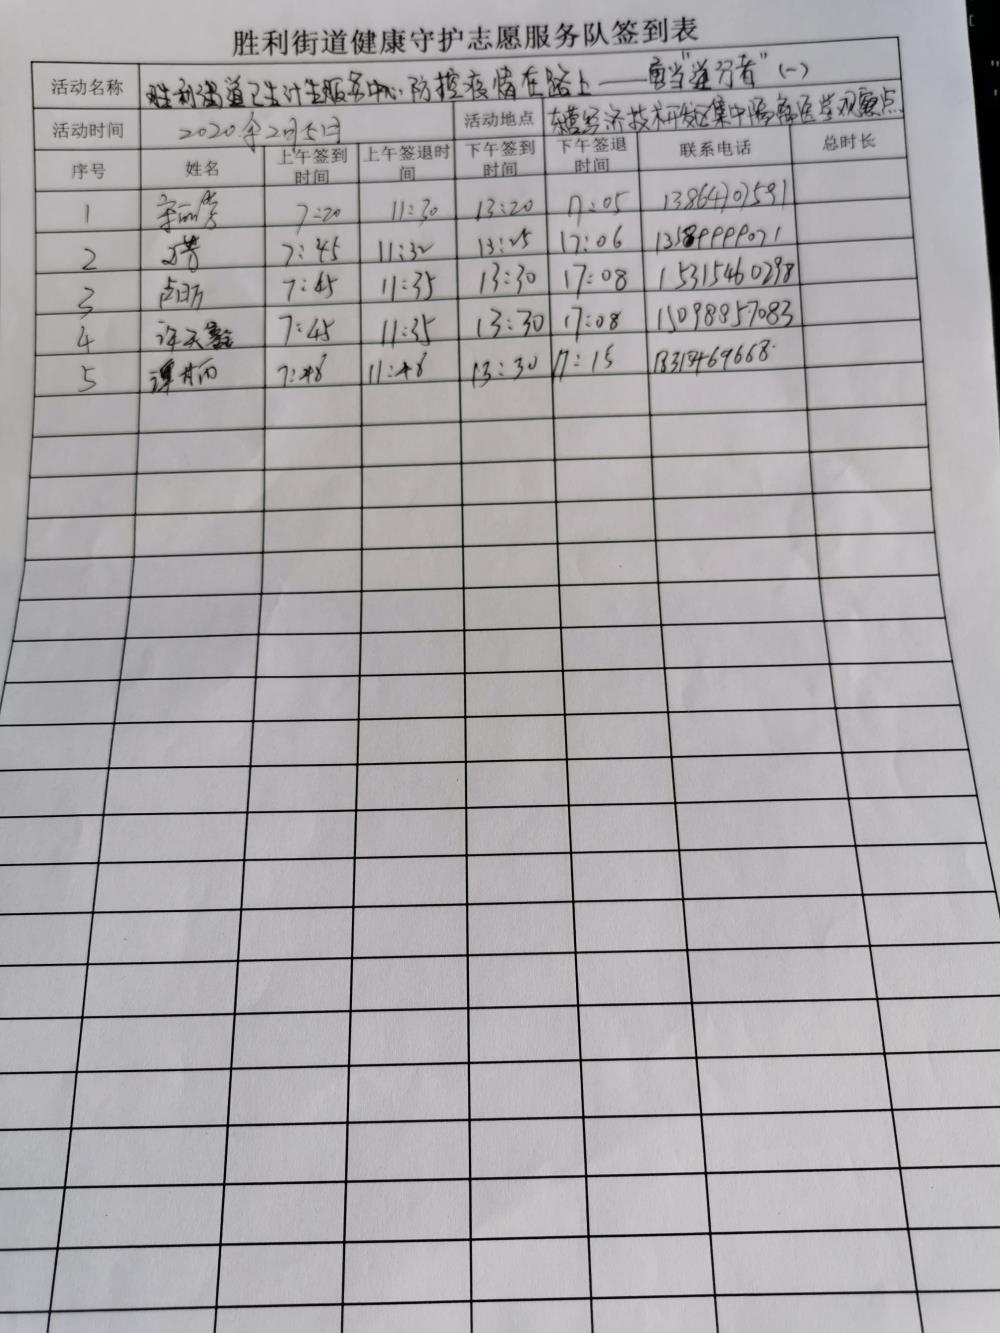 胜利街道健康守护志愿服务队签到表
活动名称 胜利街道卫生计生服务中心防控疫情在路上——勇当"逆行者"(一)
活动时间 2020年2月5日 活动地点 东营经济技术开发区集中隔离医学观察点
序号 姓名 上午签到时间 上午签退时间 下午签到时间 下午签退时间 联系电话 总时长
1 7:20 11:30 13:20 17:05
2 7:45 11:32 13:25 17:06
3 7:45 11:35 13:30 17:08 15315460298
4 7:45 11:35 13:30 17:08 15098857083
5 7:48 11:48 13:30 17:15